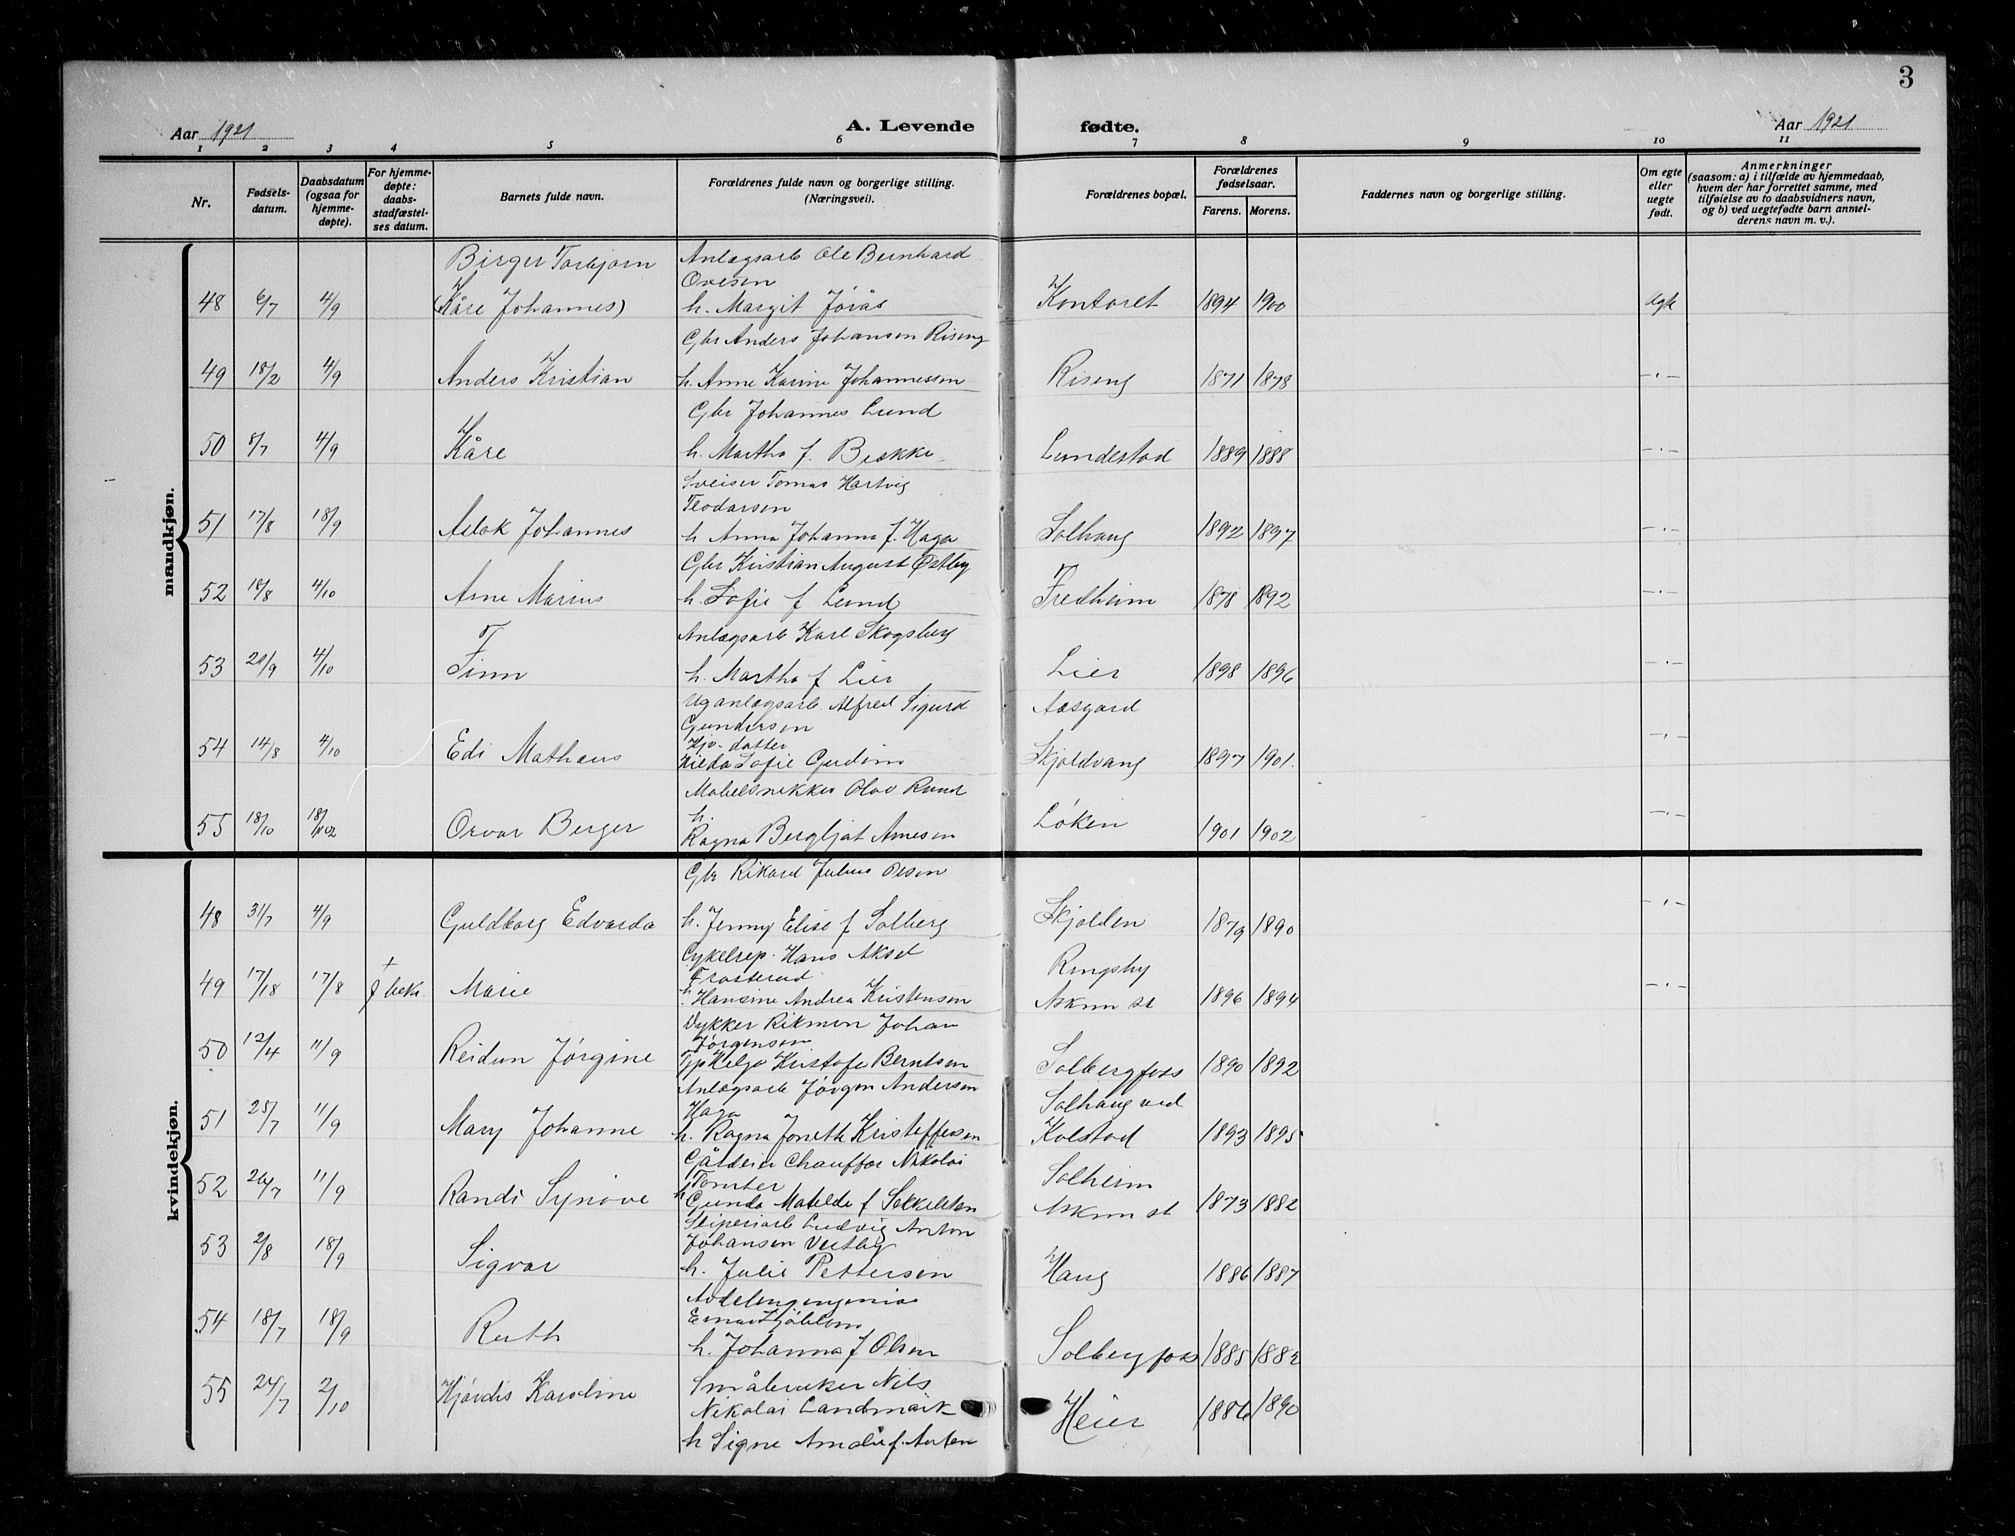 3
Aar 1921
A. Levende fødte.
Aar 1921
1 2 3 4 5 6 7 8 9 10 11
Nr.
Fødsels-
datum.
Daabsdatum
(ogsaa for
hjemme-
døpte).
For hjemme-
døpte:
daabs-
stadfæstel-
ses datum.
Barnets fulde navn.
Forældrenes fulde navn og borgerlige stilling.
(Næringsvei).
Forældrenes bopæl.
Forældrenes
fødselsaar.
Farens. Morens.
Faddernes navn og borgerlige stilling.
Om egte
eller
uegte
født.
Anmerkninger
(saasom: a) i tilfælde av hjemmedaab,
hvem der har forrettet samme, med
tilføielse av to daabsvidners navn,
og b) ved uegtefødte barn anmel-
derens navn m. v.).
mandkjøn.
Birger Torbjørn Anlægsarb Ole Bernhard
Ovesen
48 6/7 4/9 (Kåre Johannes) h. Margit Jørås Kontoret 1894 1900
Gbr Anders Johansen Riseng
49 18/2 4/9 Anders Kristian h. Anne Karine Johannessen Riseng 1871 1878 - " -
Gbr Johannes Lund
50 8/7 4/9 Kåre h. Martha f. Brekke Lundestad 1889 1888 - " -
Sveiser Tomas Hartvig
Teodorsen
51 17/8 18/9 Aslak Johannes h Anna Johanna f. Haga Solhaug 1892 1897 - " -
Gbr Kristian August Østby
52 18/8 4/10 Arne Marius h. Sofie f Lund Fredheim 1878 1892 - " -
Anlægsarb Karl Skogsberg
53 20/9 4/10 Finn h. Martha f Lier Lier 1898 1896 - " -
Ug anlægsarb Alfred Sigurd Aasgard
Gundersen
Hjv. datter
54 14/8 4/10 Edi Matheus Hilda Sofie Gudim Skjoldvang 1897 1901. - " -
Møbelsnekker Olav Rund
h.
55 18/10 Orvar Berger Ragna Bergljot Arnesen Løken 1901 1902 - " -
kvindekjøn.
Gbr Rikard Julius Olsen
48 31/7 4/9 Guldborg Edvarda h. Jenny Elise f Solberg Skjolden 1879 1890 - " -
Cykelrep. Hans Aksel Ringsby
Frosterud
49 17/18 17/8 Marie h. Hansine Andrea Kristensen Askim st 1896 1894 - " -
Dykker Rikmon Johan
Jørgensen
50 12/4 11/9 Reidun Jørgine Helga Kristofa Berntsen Solbergfoss 1890 1892
Anlægsarb Jørgen Andersen Solhaug ved
Haga
51 25/7 11/9 Mary Johanne h. Ragna Jonette Kristoffersen Kolstad 1893 1895
Gårdeier Chauffør Nikolai Solheim
Tomter
52 26/7 11/9 Randi Synøve h Gunda Matilde f Sekkelsten Askim st 1873 1882
Sliperiarb Ludvig Anton
Johansen Vestby
53 2/8 18/9 Sigvor h. Julie Pettersen Haug 1886 1887
Avdelingengeniør
54 18/7 18/9 Ruth h. Johanna f Olsen Solbergfoss 1885 1882
Småbruker Nils
55 24/7 2/10 Hjørdis Karoline Nikolai Landmark Heier 1886 1890
h Signe f. Aarten